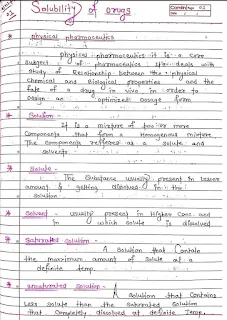 Solubility of drugs
* physical pharmaceutics
physical pharmaceutics it is a core
suject of pharmaceutics deals with
study of Relationship between the physical
chemical and Biological properties and the
fate of a drug in vivo in order to
design an optimized dosage form
* Solution -
It is a mixture of two or more
Components that form a Homogenous mixture.
The Components reffered as a solute and
solvents
* Solute -
The Substance usually present in lesser
amount & getting dissolved in the
solution
* Solvent - usually present in Higher Conc. and
in which solute is dissolved
* saturated solution -
A solution that Contain
the maximum amount of solute at a
definite temp.
* unsaturated solution -
A solution that Contains
less solute than the saturated solution
that Completely dissolved at definite Temp.